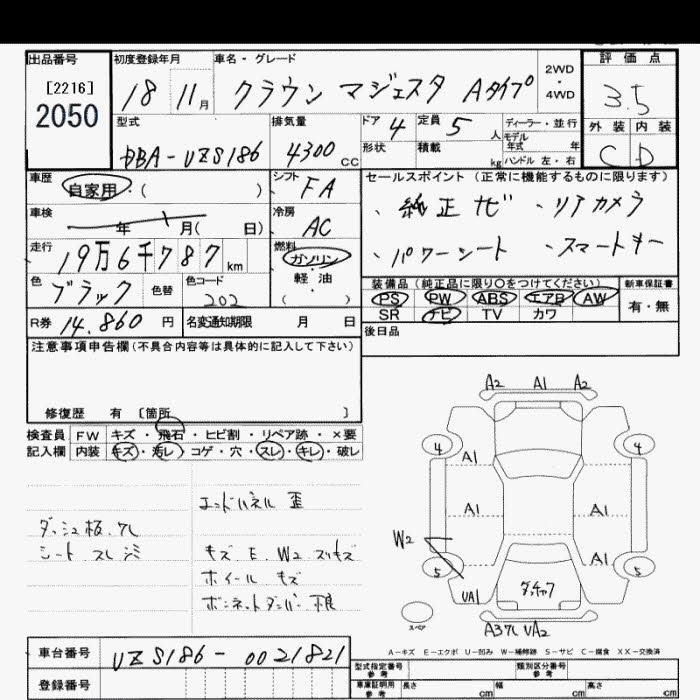 出品番号 初度登録年月 車名・グレード 2WD・4WD 評価点
[2216] 2050 18 11月 クラウン マジェスタ Aタイプ 3.5
型式 排気量 ドア 4 定員 5人 ディーラー・並行 外装 内装
DBA-UZS186 4300cc 形状 積載 kg モデル年式 年 ハンドル 左・右 C D
車歴 自家用・( ) シフト FA セールスポイント (正常に機能するものに限ります)
車検 年 月( 日) 冷房 AC ・純正ナビ ・リアカメラ
走行 19万6千787km 燃料 ガソリン ・パワーシート ・スマートキー
色 ブラック 色替 色コード 202 軽・油 ( ) 装備品 (純正品に限り○をつけてください) 新車保証書
PS PW ABS エアB AW 有・無
R券 14.860円 名変通知期限 月 日 SR ナビ TV カワ
注意事項申告欄(不具合内容等は具体的に記入して下さい) 後日品
修復歴 有 〔箇所 〕
検査員 FW キズ・飛石・ヒビ割・リペア跡・×要
記入欄 内装 キズ・汚レ・コゲ・穴・スレ・キレ・破レ
エンドパネル 歪
ダッシュ板 クレ
シート スレ シミ キズ E W2 スリキズ
ホイール キズ
ボンネットダンパー 不良
A2 A1 A2
4 4
A1
A1 A1
W2 A1
5 5
UA1
スペア
UA2
A-キズ E-エクボ U-凹み W-補修跡 S-サビ C-腐食 XX-交換済
車台番号 UZS186-0021821 型式指定番号 参考 類別区分番号 参考
登録番号 車庫証明用 参考 長さ cm 幅 cm 高さ cm